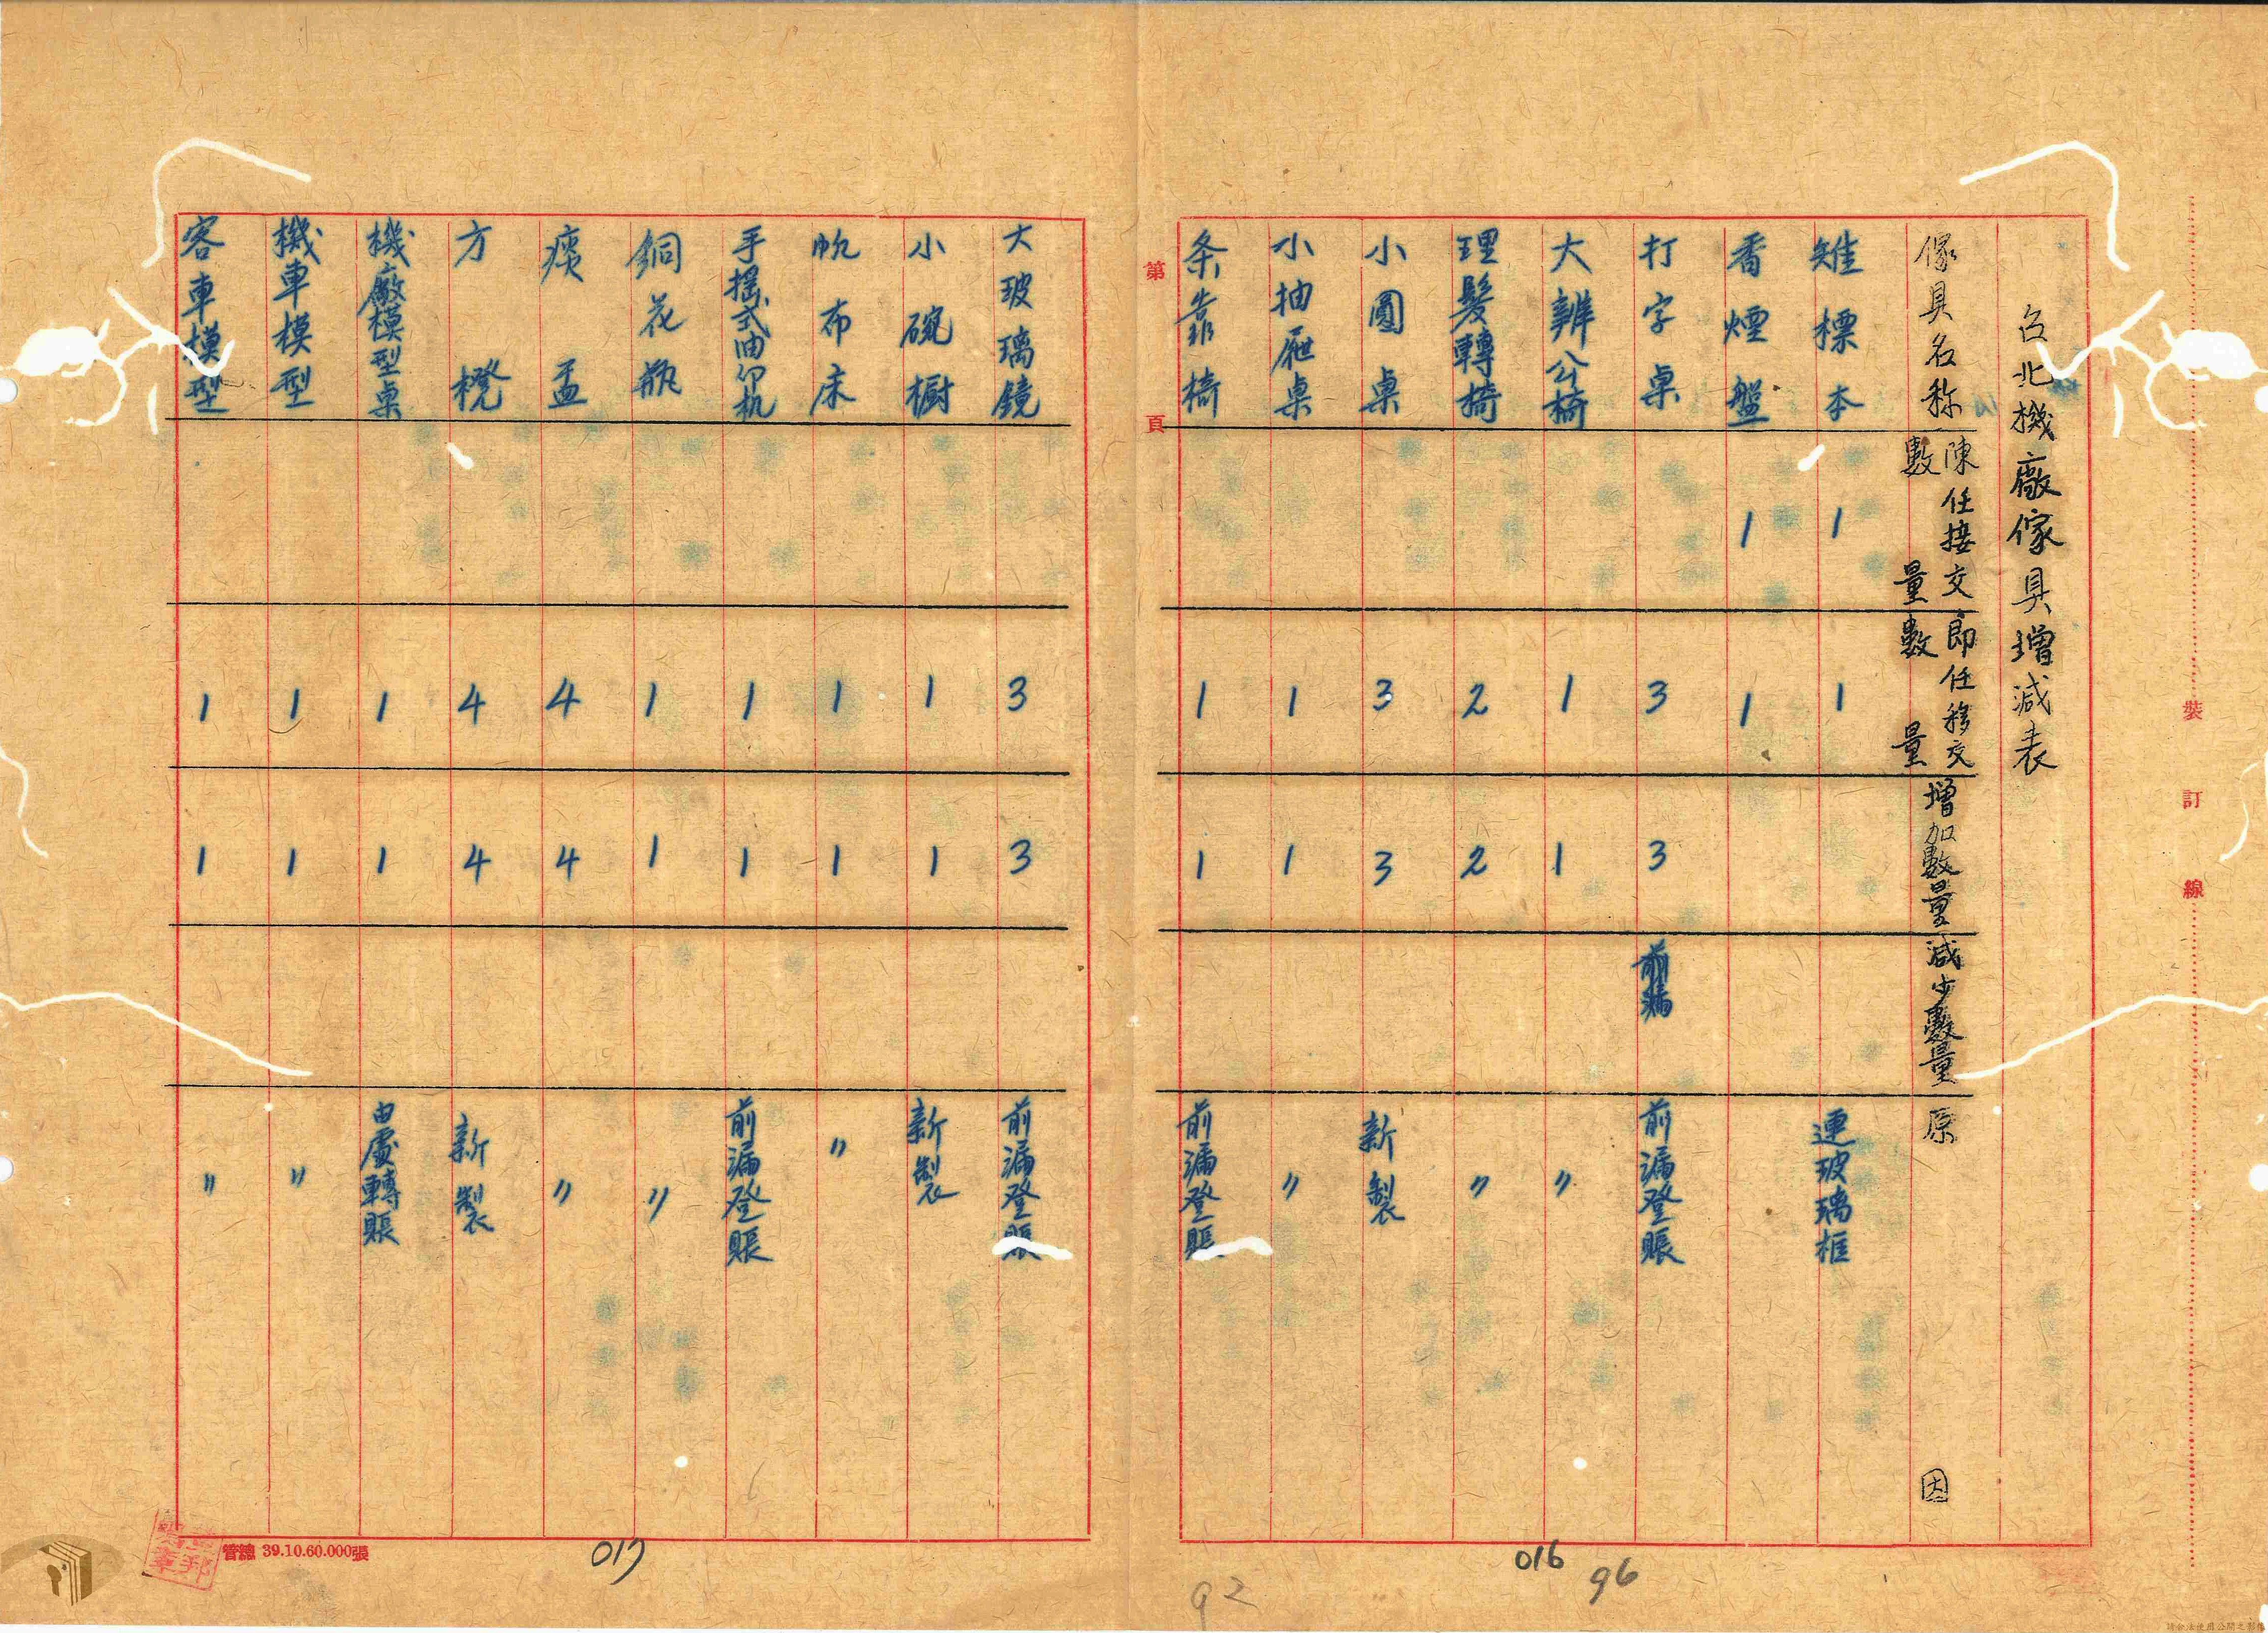 台北機廠傢具增減表
傢具名称
陳任接交數量
即任移交數量
增加數量
減少數量
原因
雉標本 1 1 連玻璃框
香煙盤 1 1
打字桌 3 3 前漏 前漏登賬
大辦公椅 1 1 〃
理髮轉椅 2 2 〃
小圓桌 3 3 新製
小抽屜桌 1 1 〃
条靠椅 1 1 前漏登賬
第頁
大玻璃鏡 3 3 前漏登賬
小碗櫥 1 1 新製
帆布床 1 1 〃
手搖式油印机 1 1 前漏登賬
銅花瓶 1 1 〃
痰盂 4 4 〃
方櫈 4 4 新製
機廠模型桌 1 1 由處轉賬
機車模型 1 1 〃
客車模型 1 1 〃
裝訂線
管總 39.10.60.000張
017
016
96
92